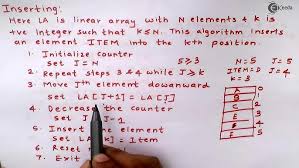 Inserting:
Here LA is linear array with N elements & K is
+ve integer such that K≤N. This algorithm inserts
an element ITEM into the Kth position.
1. Initialize counter
Set J = N
J≥3 N=5 J=5
2. Repeat Steps 3 & 4 while J≥K ITEM=D J=4
3. Move Jth element downward K=3
Set LA[J+1] = LA[J]
4. Decrease the counter
Set J-1
5. Insert the element
Set [K] = Item
6. Reset
7. Exit
A 0
B 1
C 2
E 3
E 5